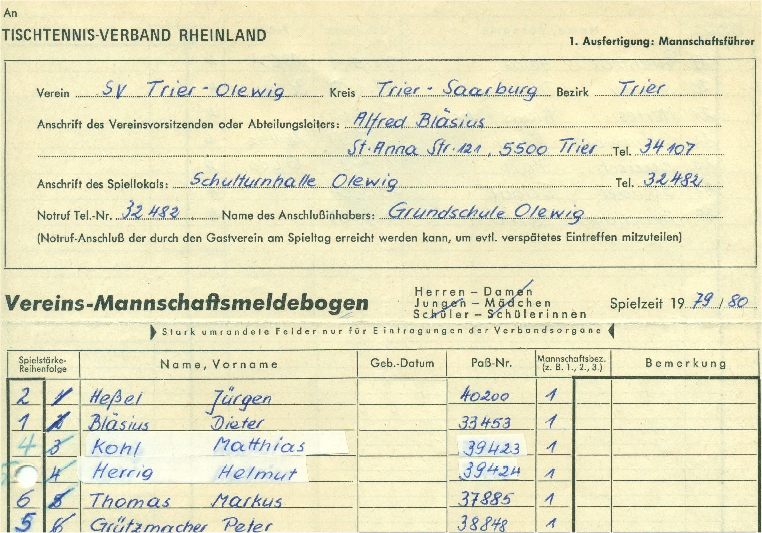 An
TISCHTENNIS-VERBAND RHEINLAND
1. Ausfertigung: Mannschaftsführer
Verein SV Trier-Olewig Kreis Trier-Saarburg Bezirk Trier
Anschrift des Vereinsvorsitzenden oder Abteilungsleiters: Alfred Bläsius
St. Anna Str. 121, 5500 Trier Tel. 34107
Anschrift des Spiellokals: Schulturnhalle Olewig Tel. 32482
Notruf Tel.-Nr. 32482 Name des Anschlußinhabers: Grundschule Olewig
(Notruf-Anschluß der durch den Gastverein am Spieltag erreicht werden kann, um evtl. verspätetes Eintreffen mitzuteilen)
Vereins-Mannschaftsmeldebogen
Herren – Damen
Jungen – Mädchen
Schüler – Schülerinnen
Spielzeit 19 79 / 80
Stark umrandete Felder nur für Eintragungen der Verbandsorgane
Spielstärke-Reihenfolge Name, Vorname Geb.-Datum Paß-Nr. Mannschaftsbez. (z. B. 1., 2., 3.) Bemerkung
2 1 Heßel Jürgen 40200 1
1 2 Bläsius Dieter 33453 1
4 3 Kohl Matthias 39423 1
4 Herrig Helmut 39424 1
6 5 Thomas Markus 37885 1
5 6 Grützmacher Peter 38848 1